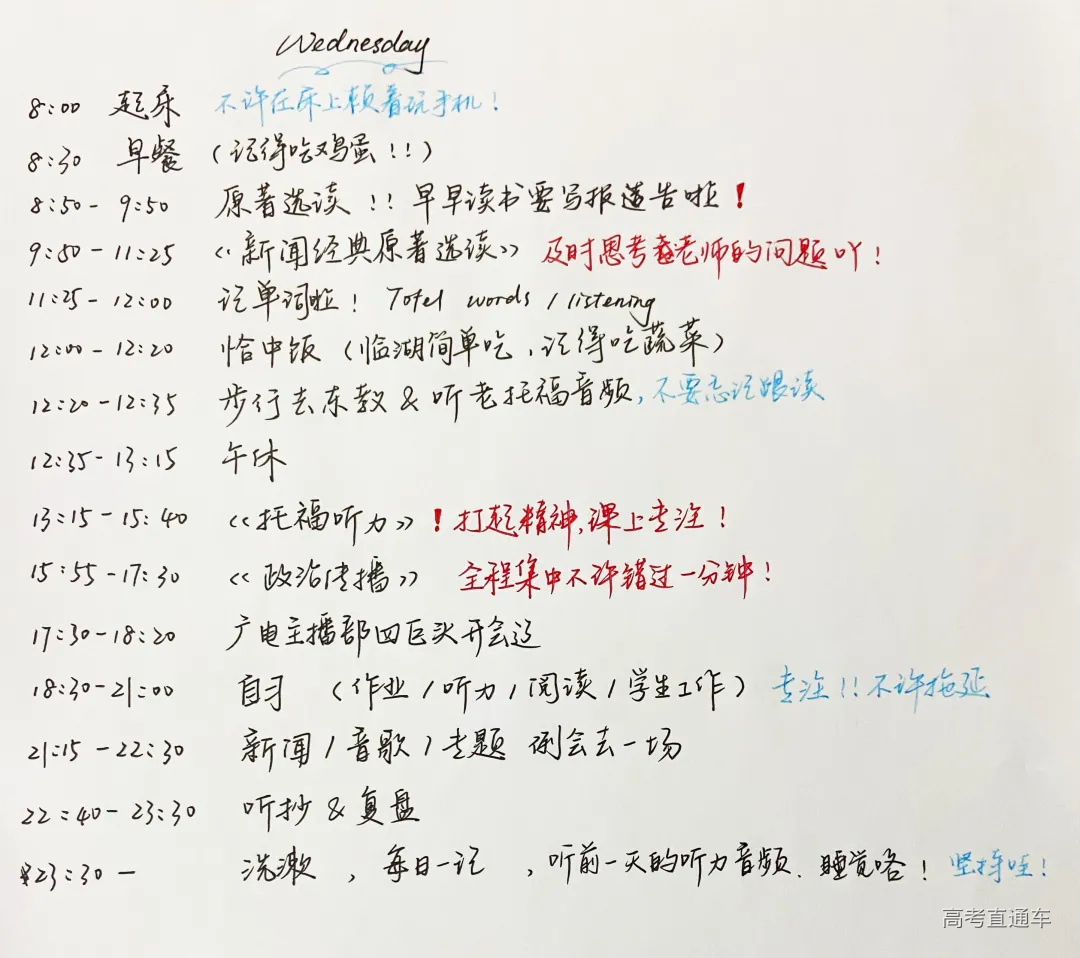 Wednesday
8:00 起床 不许在床上赖着玩手机！
8:30 早餐 （记得吃鸡蛋！！）
8:50 - 9:50 原著选读 !! 早早读书要写报道告啦！
9:50 - 11:25 《新闻经典原著选读》 及时思考老师的问题吖！
11:25 - 12:00 记单词啦！ Tofel words / listening
12:00 - 12:20 恰中饭 （临湖简单吃，记得吃蔬菜）
12:20 - 12:35 步行去东教 & 听老托福音频，不要忘记跟读
12:35 - 13:15 午休
13:15 - 15:40 《托福听力》！打起精神，课上专注！
15:55 - 17:30 《政治传播》 全程集中不许错过一分钟！
17:30 - 18:20 广电主播部四巨头开会辽
18:30 - 21:00 自习 （作业 / 听力 / 阅读 / 学生工作） 专注!! 不许拖延
21:15 - 22:30 新闻 / 音歌 / 专题 例会去一场
22:40 - 23:30 听抄 & 复盘
23:30 - 洗漱 ，每日一记 ，听前一天的听力音频、睡觉咯！ 坚持哇！
高考直通车